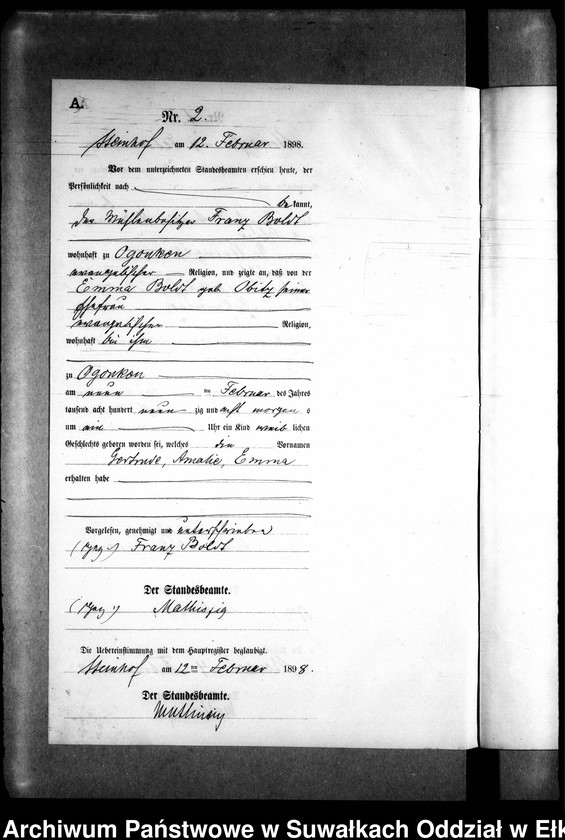 A.
Nr. 2.
Steinhof am 12. Februar 1898.
Vor dem unterzeichneten Standesbeamten erschien heute, der
Persönlichkeit nach
bekannt,
der Mühlenbesitzer Franz Boldt
wohnhaft zu Ogonken
evangelischer Religion, und zeigte an, daß von der
Emma Boldt geb Obitz seiner
Ehefrau
evangelischer Religion,
wohnhaft bei ihm
zu Ogonken
am neun ten Februar des Jahres
tausend acht hundert neun zig und acht morgens
um ein Uhr ein Kind weib lichen
Geschlechts geboren worden sei, welches die Vornamen
Gertrude, Amalie, Emma
erhalten habe
Vorgelesen, genehmigt und unterschrieben
(gez.) Franz Boldt
Der Standesbeamte.
(gez.) Mathiszig
Die Uebereinstimmung mit dem Hauptregister beglaubigt.
Steinhof am 12ten Februar 1898.
Der Standesbeamte.
Mathiszig
Archiwum Państwowe w Suwałkach Oddział w Ełk